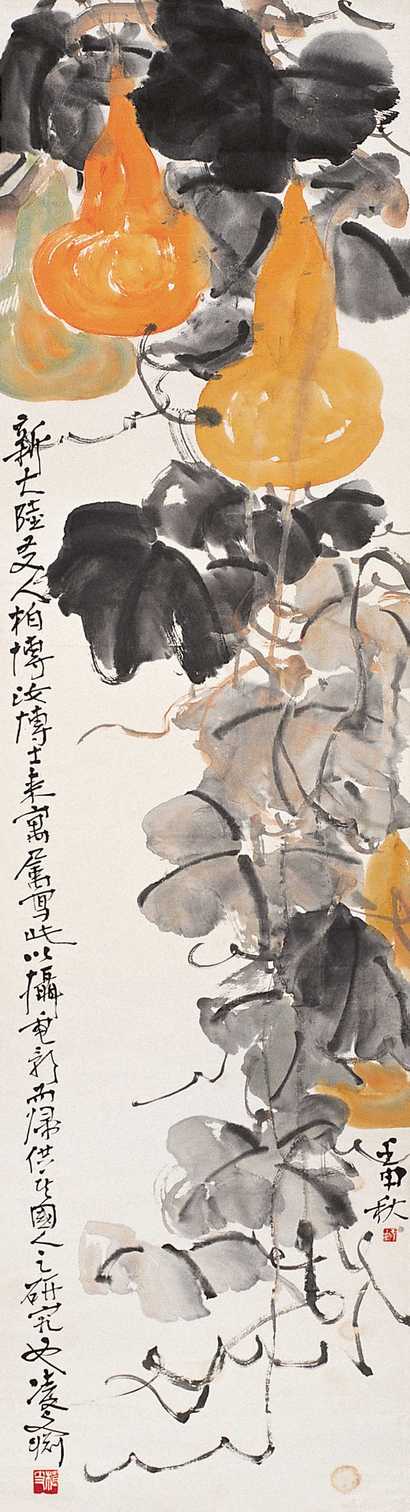 壬申秋
新大陸友人柏博汝博士來寓屬寫此以攝電影而歸供其國人之研究也凌文淵
植支